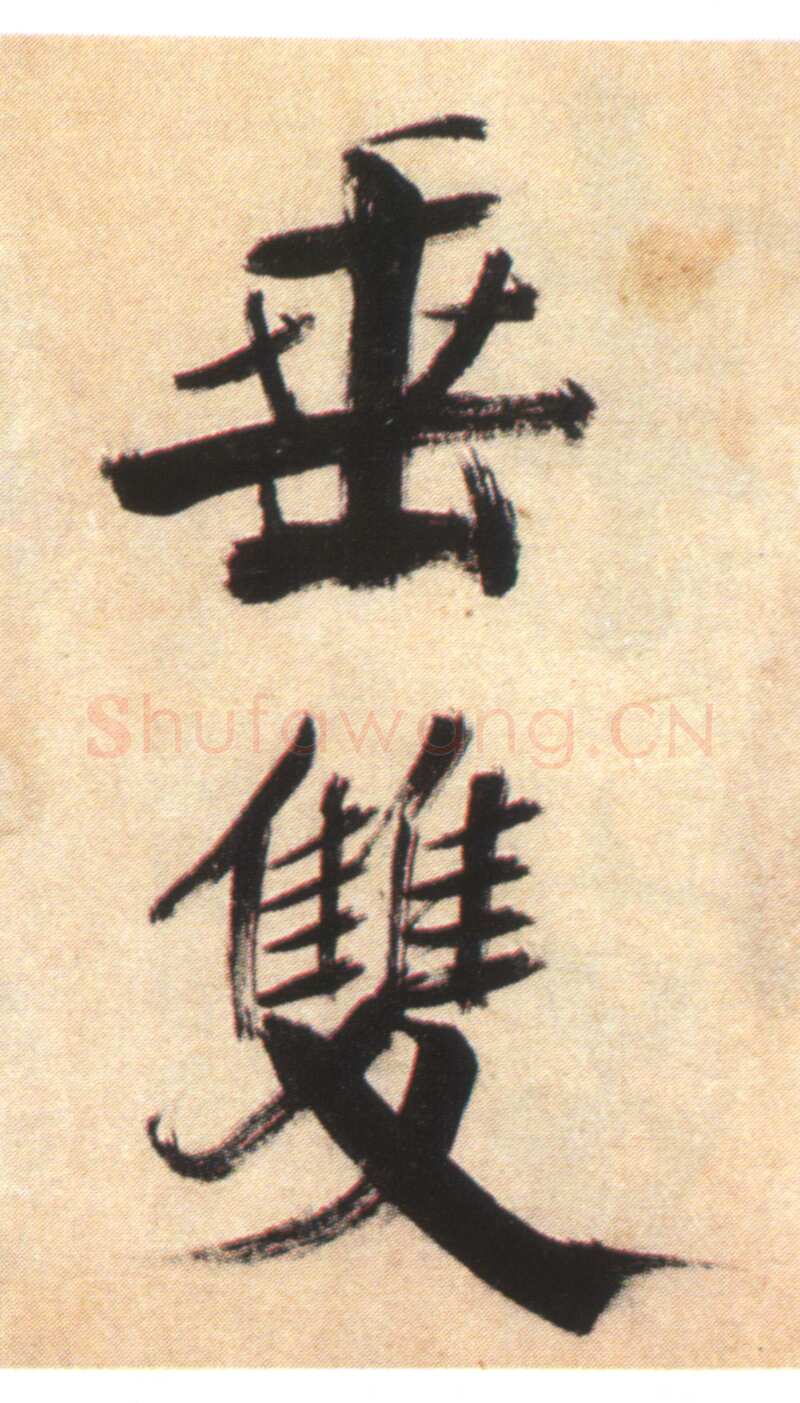 垂
雙
Shufawang.CN